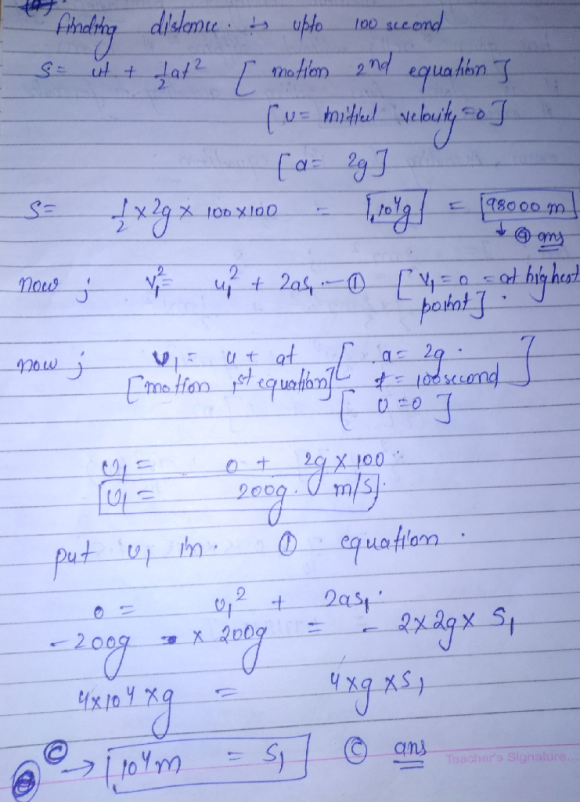 (a)
Finding distance. :→ upto 100 second
S= ut + 1/2 at² [ motion 2nd equation ]
[ u = initial velocity = 0 ]
[ a = 2g ]
S= 1/2 × 2g × 100×100 = 10⁴g = 98000 m
↓ @ ans
now ; v₁² = u₁² + 2as₁ — ① [ v₁ = 0 = at highest point ].
now ; u₁ = u + at [ a = 2g .
[ motion 1st equation ] t = 100 second ]
[ u = 0 ]
u₁ = 0 + 2g × 100
u₁ = 200g. m/s.
put u₁ in. ① equation .
0 = u₁² + 2as₁.
-200g × 200g = - 2×2g× S₁
4×10⁴ ×g = 4×g×S₁
ⓒ → 10⁴m = S₁ ⓒ ans
Teacher's Signature...